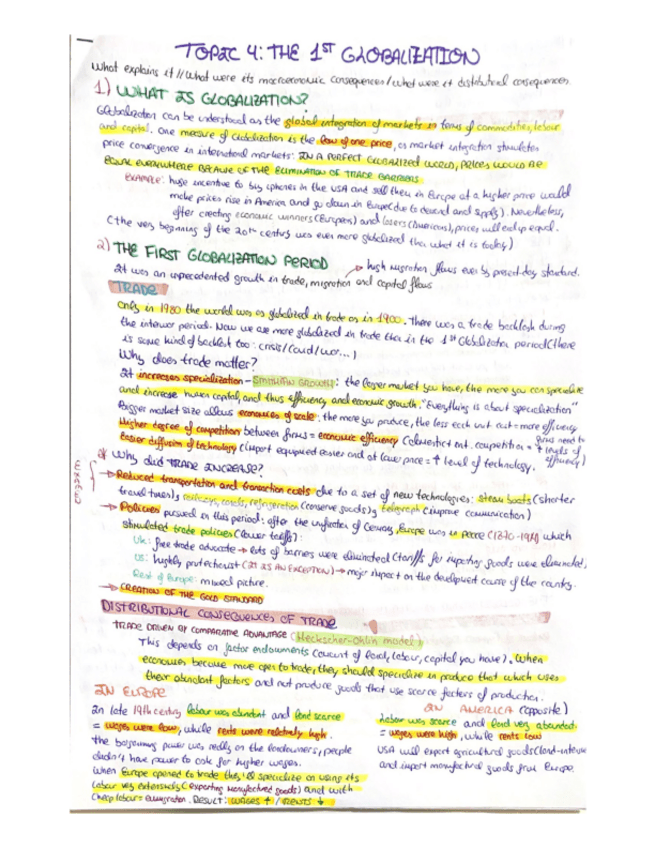 TOPIC 4: THE 1ST GLOBALIZATION
What explains it // What were its macroeconomic consequences / what were it distributional consequences.
1) WHAT IS GLOBALIZATION?
Globalization can be understood as the global integration of markets in terms of commodities, labour
and capital. One measure of Globalization is the law of one price, as market integration stimulates
price convergence in international markets: IN A PERFECT GLOBALIZED WORLD, PRICES WOULD BE
EQUAL EVERYWHERE BECAUSE OF THE ELIMINATION OF TRADE BARRIERS
EXAMPLE: huge incentive to buy iphones in the USA and sell them in Europe at a higher price would
make prices rise in America and go down in Europe (due to demand and supply). Nevertheless,
after creating economic winners (Europeans) and losers (Americans), prices will end up equal.
(the very beginning of the 20th century was even more globalized than what it is today)
2) THE FIRST GLOBALIZATION PERIOD
→ high migration flows even by present-day standard.
It was an unprecedented growth in trade, migration and capital flows
TRADE
Only in 1980 the world was as globalized in trade as in 1900. There was a trade backlash during
the interwar period. Now we are more globalized in trade than in the 1st Globalization period (there
is some kind of backlash too: crisis/Covid/war...)
Why does trade matter?
It increases specialization - SMITHIAN GROWTH: the larger market you have, the more you can specialize
and increase human capital, and thus efficiency and economic growth. "Everything is about specialization"
Bigger market size allows economies of scale: the more you produce, the less each unit cost = more efficiency
Higher degree of competition between firms = economic efficiency ( competition = firms need to ↑ levels of efficiency)
Easier diffusion of technology (import equipment easier and at lower price = ↑ level of technology.
* Why did TRADE INCREASE?
→ Reduced transportation and transaction costs due to a set of new technologies: steam boats (shorter
travel times), railways, canals, refrigeration (conserve goods), telegraph (improve communication)
→ Policies pursued in this period: after the unification of Germany, Europe was in peace (1870-1914) which
stimulated trade policies (lower tariffs):
UK: free trade advocate → lots of barriers were eliminated (tariffs for importing goods were eliminated)
US: highly protectionist (IT IS AN EXCEPTION) → major impact on the development course of the country.
Rest of Europe: mixed picture.
→ CREATION OF THE GOLD STANDARD
DISTRIBUTIONAL CONSEQUENCES OF TRADE
TRADE DRIVEN BY COMPARATIVE ADVANTAGE (Heckscher-Ohlin model)
This depends on factor endowments (amount of land, labour, capital you have). When
economies become more open to trade, they should specialize in produce that which uses
their abundant factors and not produce goods that use scarce factors of production.
IN EUROPE
In late 19th century labour was abundant and land scarce
= wages were low, while rents were relatively high.
The bargaining power was really on the landowners, people
didn't have power to ask for higher wages.
When Europe opened to trade they'll specialize on using its
labour very extensively (exporting manufactured goods) and with
cheap labour = emigration. RESULT: WAGES ↑ / RENTS ↓
IN AMERICA (opposite)
Labour was scarce and land very abundant
= wages were high, while rents low
USA will export agricultural goods (land-intense
and import manufactured goods from Europe.